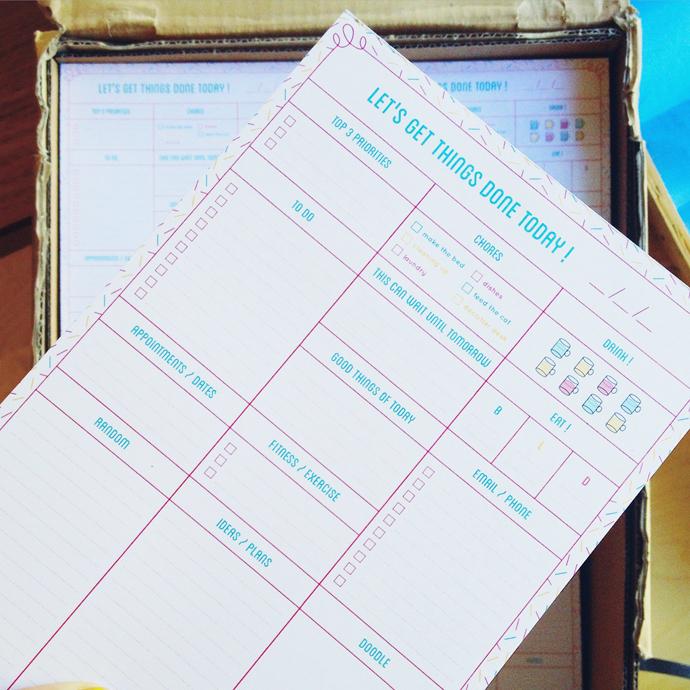 LET'S GET THINGS DONE TODAY!
_/_/_
TOP 3 PRIORITIES
CHORES
make the bed
cleaning up
laundry
dishes
feed the cat
declutter desk
DRINK!
TO DO
THIS CAN WAIT UNTIL TOMORROW
EAT!
B
L
D
APPOINTMENTS / DATES
GOOD THINGS OF TODAY
RANDOM
FITNESS / EXERCISE
EMAIL / PHONE
IDEAS / PLANS
DOODLE
LET'S GET THINGS DONE TODAY!
TOP 3 PRIORITIES
CHORES
TO DO
DONE TODAY!
DRINK!